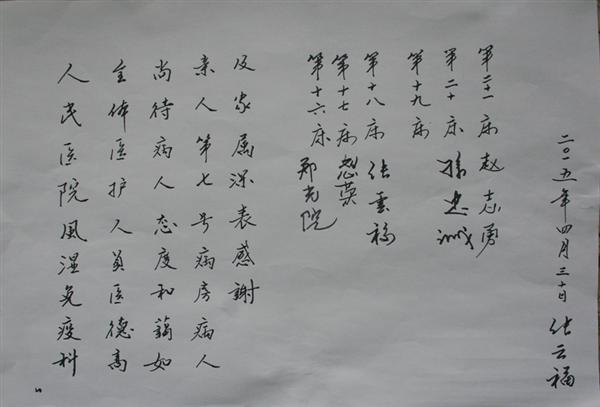 人民医院風湿免疫科
全体医护人員医德高
尚待病人态度和藹如
亲人第七号病房病人
及家属深表感謝
第十六床 郑光院
第十七床
第十八床 张雲福
第十九床
第二十床 孫忠诚
第二十一床 赵志勇
二〇一五年四月三十日 张云福